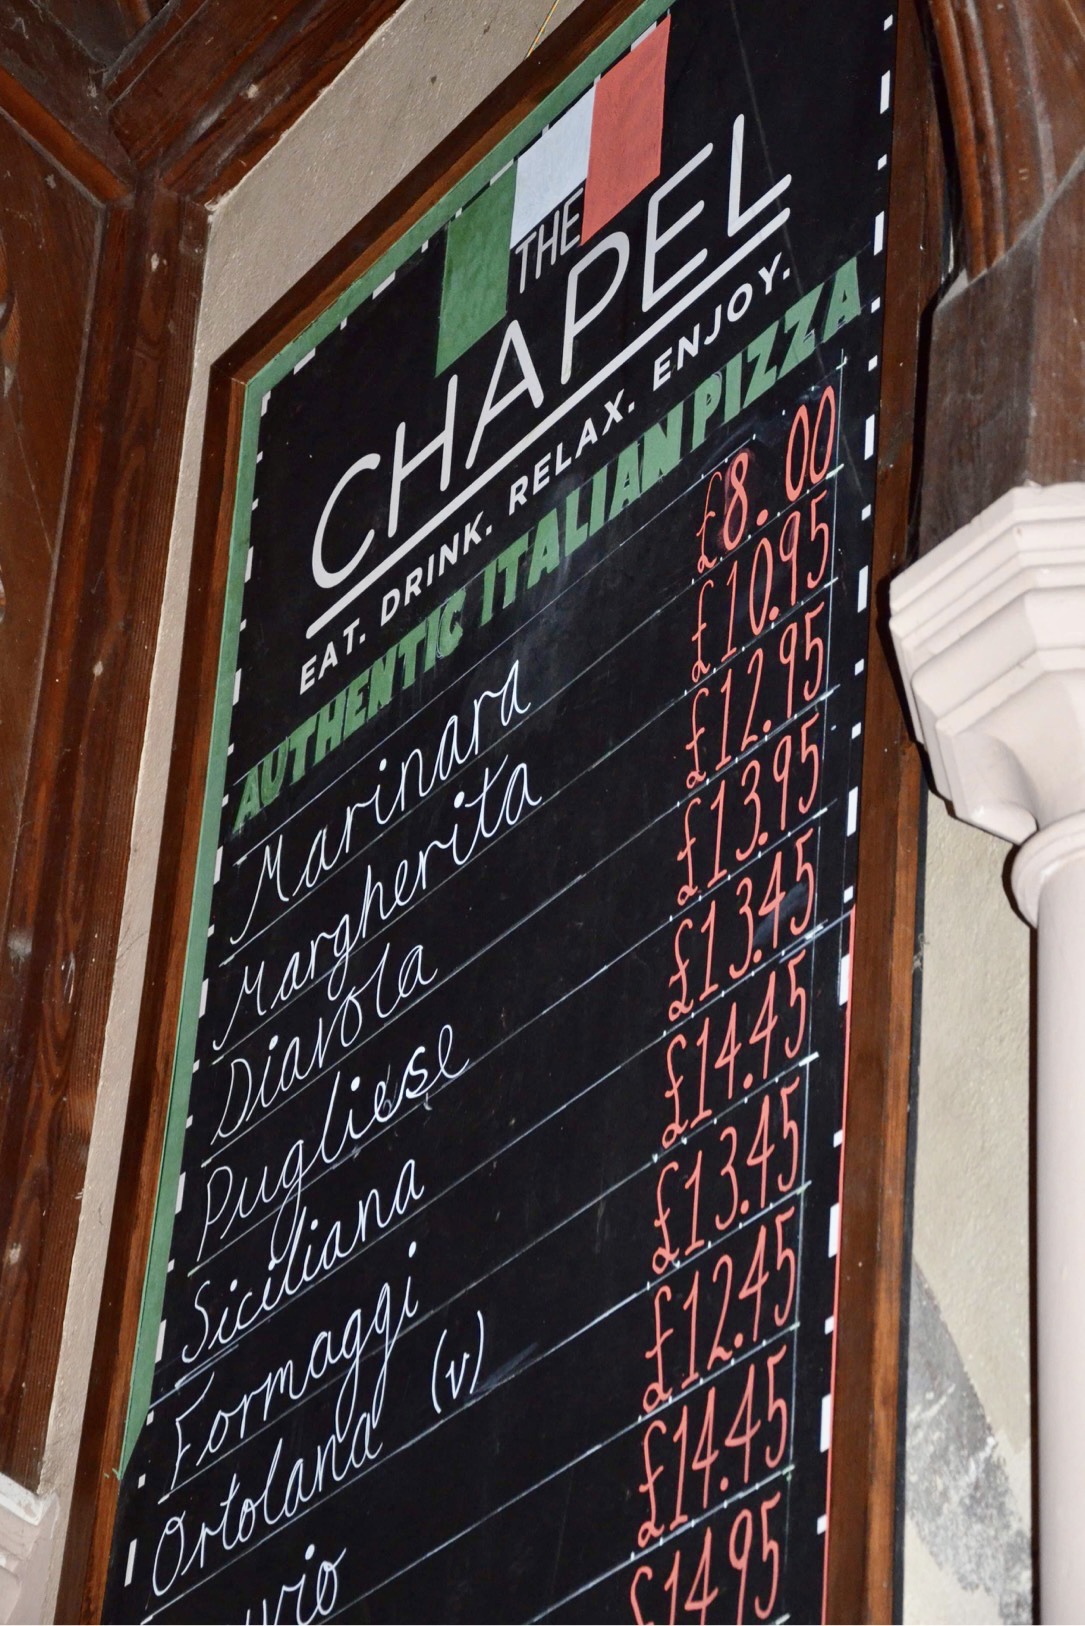 THE
CHAPEL
EAT. DRINK. RELAX. ENJOY.
AUTHENTIC ITALIAN PIZZA
Marinara £8.00
Margherita £10.95
Diavola £12.95
Pugliese £13.95
Siciliana £13.45
Formaggi £14.45
Ortolana (v) £13.45
£12.45
£14.45
£14.95